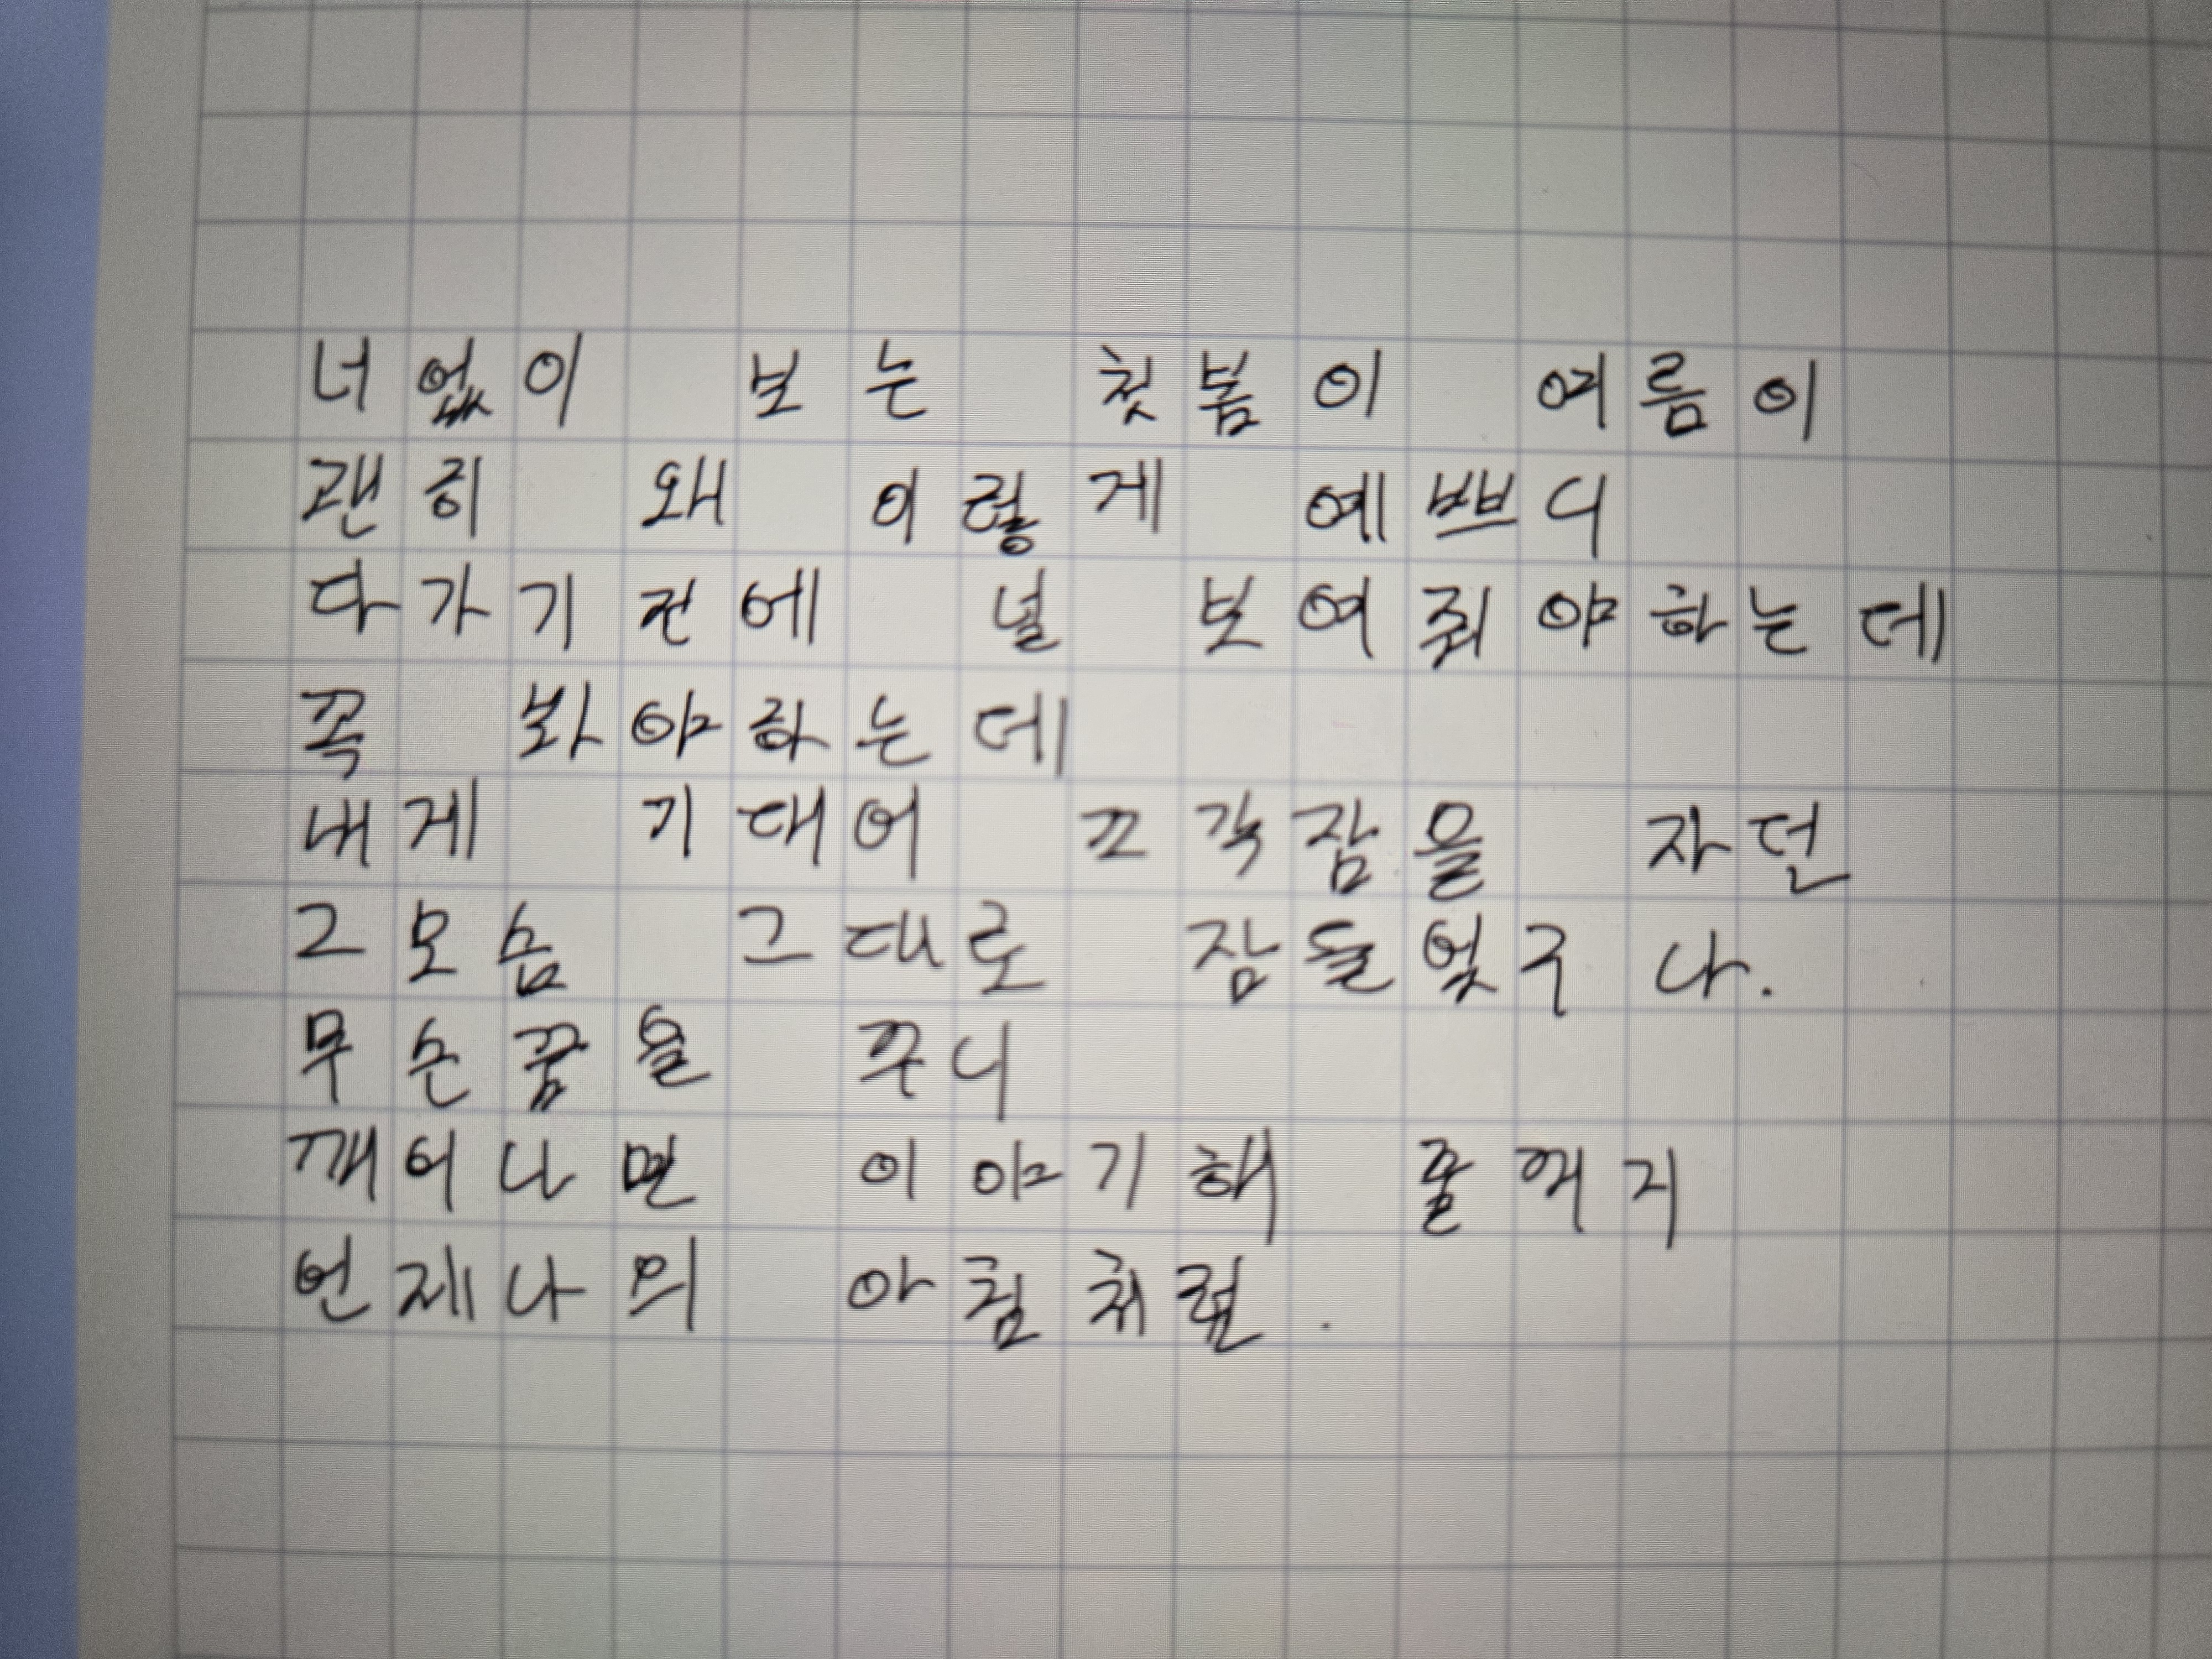 너없이 보는 첫봄이 여름이
괜히 왜 이렇게 예쁘니
다가기전에 널 보여줘야하는데
꼭 봐야하는데
내게 기대어 끄걱잠을 자던
그모습 그대로 잠들었구나.
무슨꿈을 꾸니
깨어나면 이야기해 줄꺼지
언제나의 아침처럼.